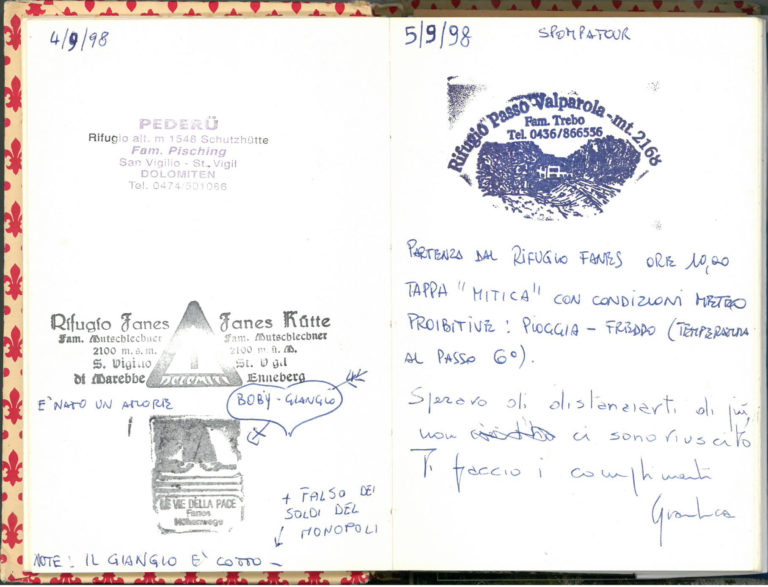 4/9/98
PEDERÜ
Rifugio alt. m 1548 Schutzhütte
Fam. Pisching
San Vigilio - St. Vigil
DOLOMITEN
Tel. 0474/501086
Rifugio Fanes
Fam. Mutschlechner
2100 m.s.m.
S. Vigilio
di Marebbe
DOLOMITI
Fanes Hütte
Fam. Mutschlechner
2100 m.ü.M.
St. Vigil
Enneberg
E' NATO UN AMORE
BOBY - GIANGIO
LE VIE DELLA PACE
Fanes
Höhenwege
+ FALSO DEI
SOLDI DEL
MONOPOLI
NOTE: IL GIANGIO E' COTTO -
5/9/98 SPOMPATOUR
Rifugio Passo Valparola - mt. 2168
Fam. Trebo
Tel. 0436/866556
PARTENZA DAL RIFUGIO FANES ORE 10,20
TAPPA "MITICA" CON CONDIZIONI METEO
PROIBITIVE: PIOGGIA - FREDDO (TEMPERATURA
AL PASSO 6°).
Speravo di distanziarti di più,
non ci sono riuscito
Ti faccio i complimenti
Gianluca